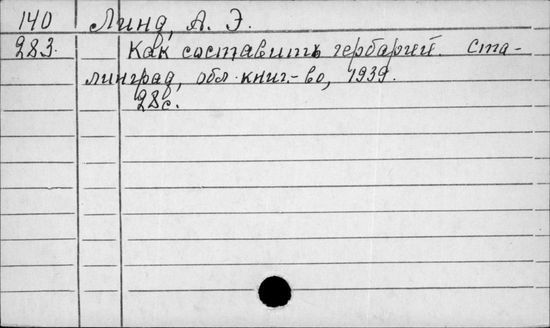 140 Линд, А. Э.
283. Как составить гербарий. Ста-
линград, обл. книг.-во, 1939.
28с.